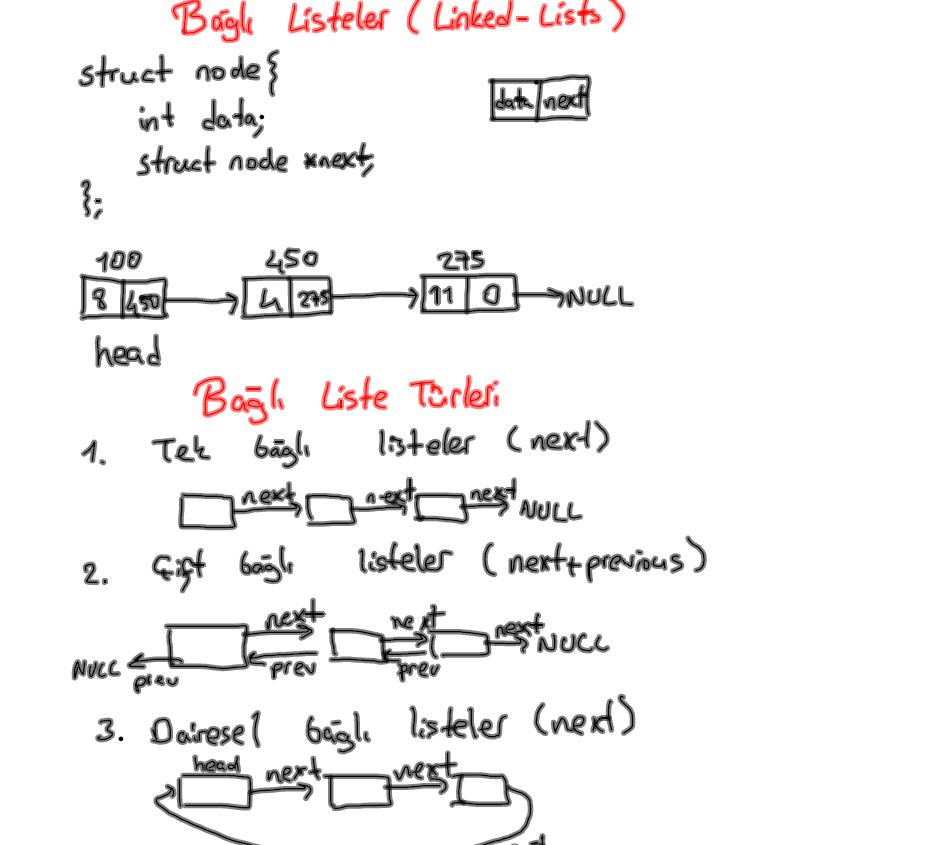 Bağlı Listeler (Linked-Lists)
struct node{
data next
int data;
struct node *next;
};
100 450 275
8 450 4 275 11 0 NULL
head
Bağlı Liste Türleri
1. Tek bağlı listeler (next)
next next next NULL
2. Çift bağlı listeler (next+previous)
next next next NULL
NULL prev prev prev
3. Dairesel bağlı listeler (next)
head next next